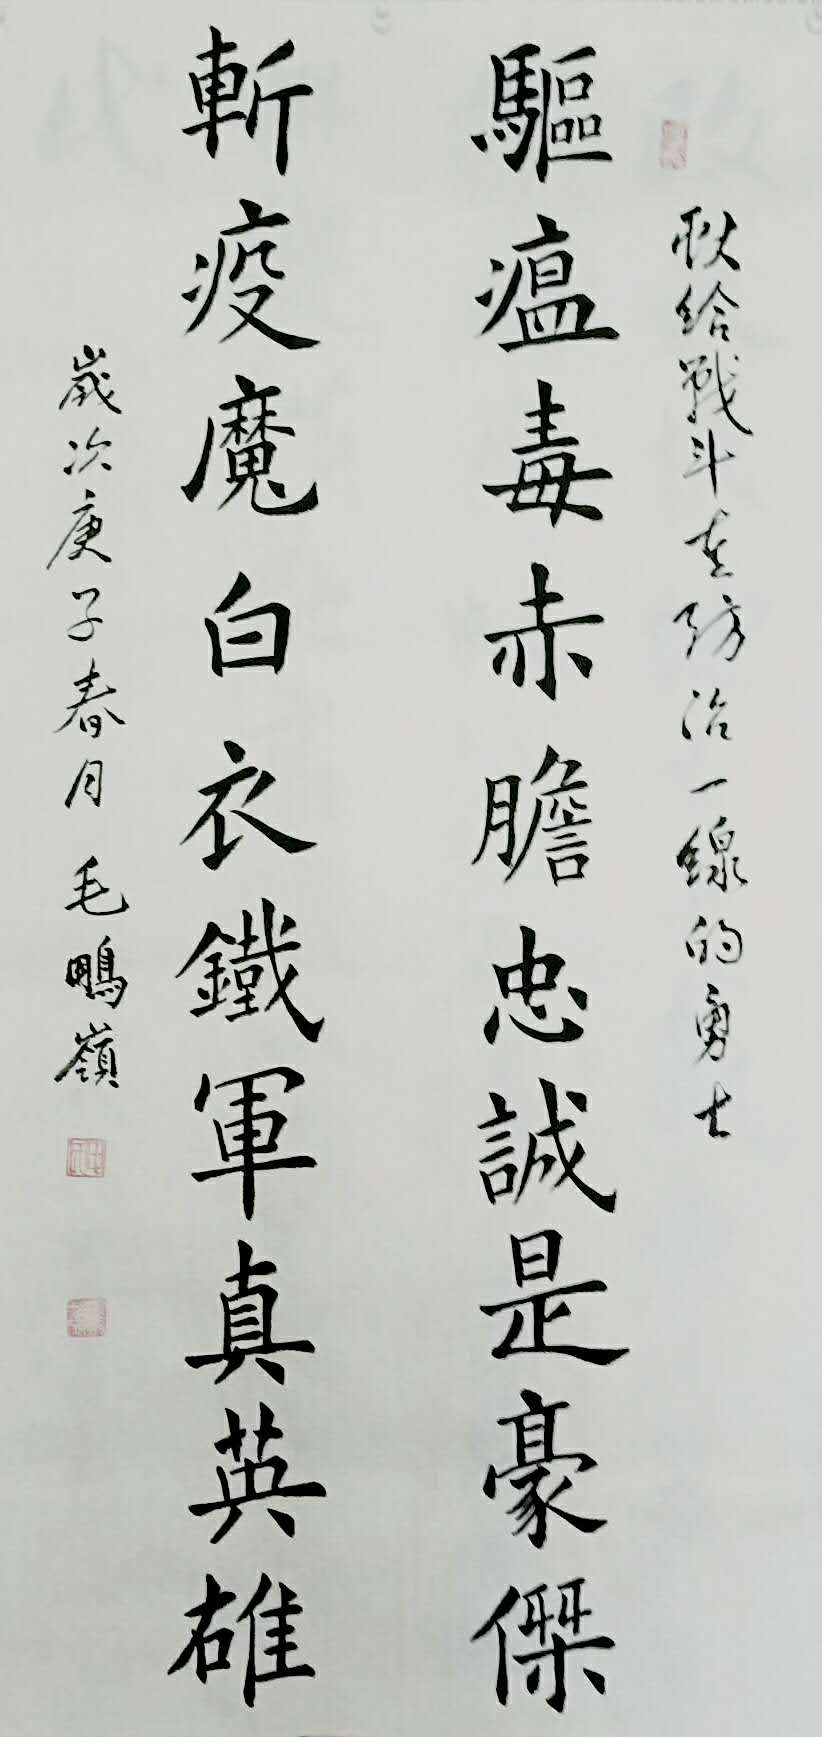 献给战斗在防治一線的勇士
驅瘟毒赤膽忠誠是豪傑
斬疫魔白衣鐵軍真英雄
歲次庚子春月毛鵬嶺